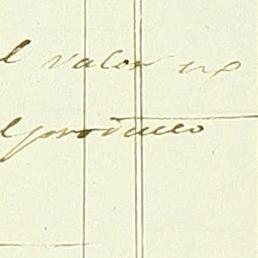 l valor
l producto